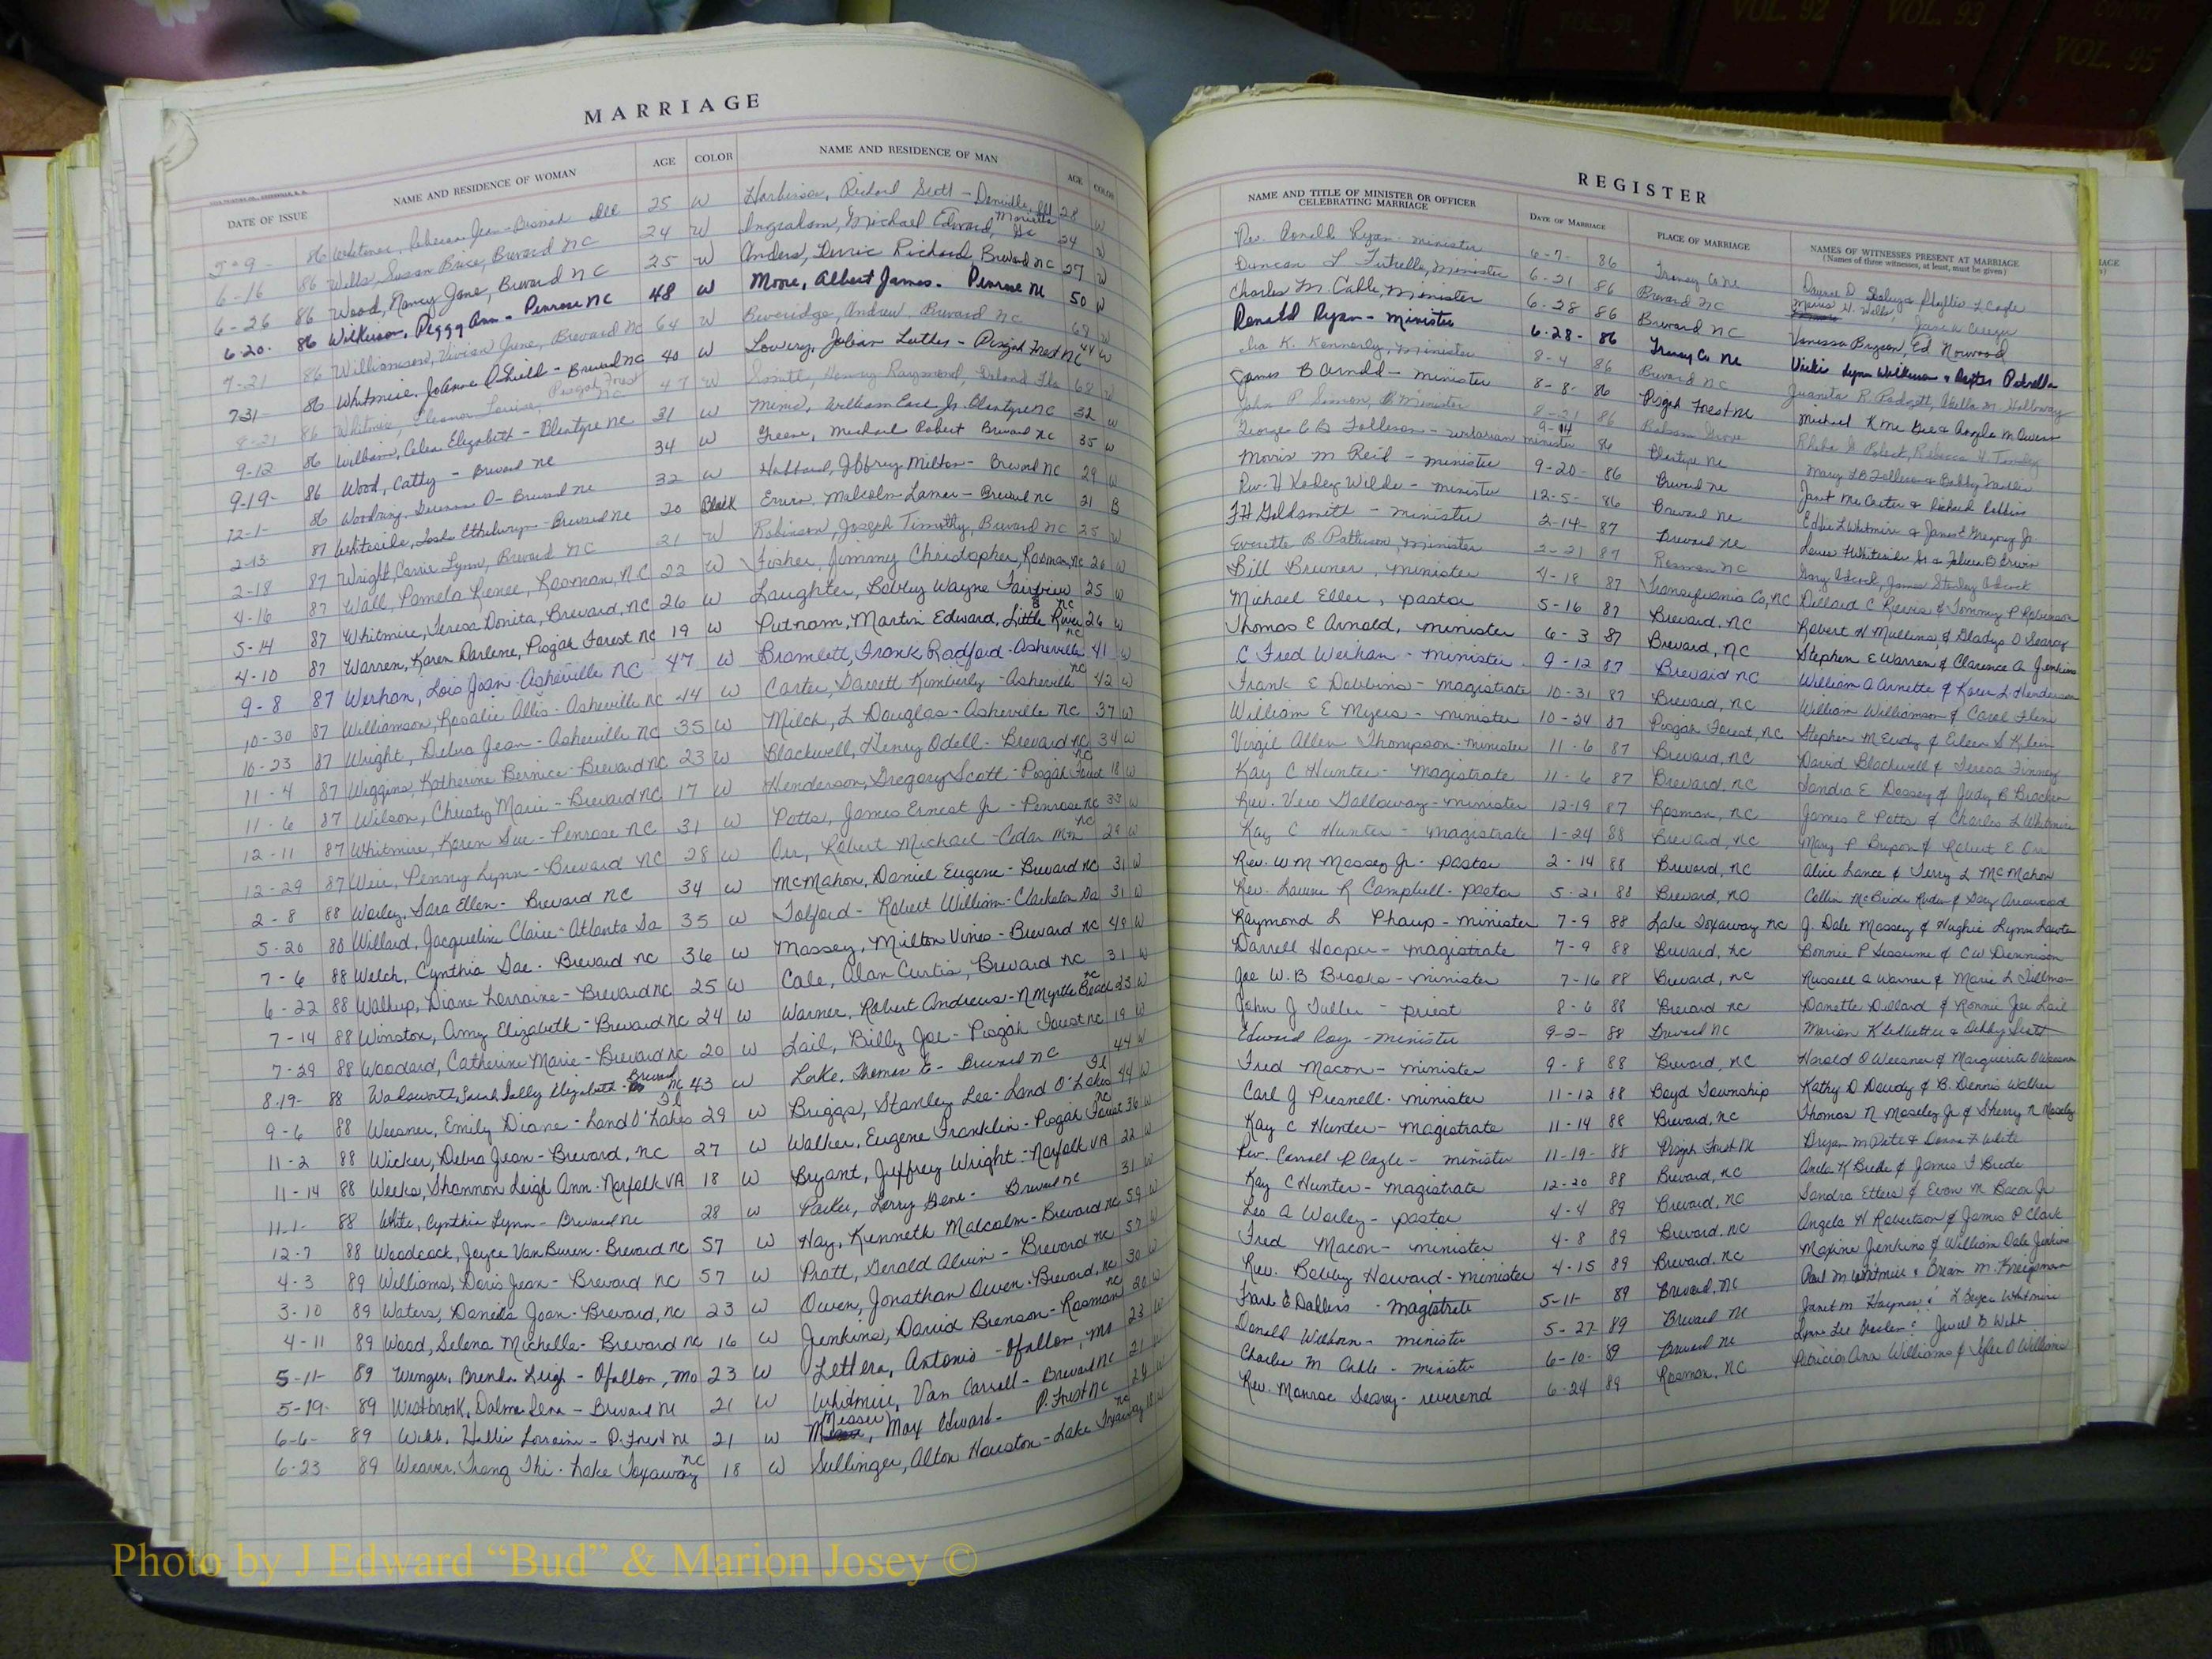 VOL. 92
VOL. 93
VOL. 95
MARRIAGE
DATE OF ISSUE
NAME AND RESIDENCE OF WOMAN
AGE
COLOR
NAME AND RESIDENCE OF MAN
AGE
COLOR
86 Whitener, Jean 25 W Harbison, Richard Scott - Danville, 28 W
6-16 86 Wells, Susan Brevard NC 24 W Ingraham, Michael Edward, Marietta Ga 24 W
6-26 86 Wood, Nancy Jane, Brevard NC 25 W Anders, Richard, Brevard NC 27 W
6-20- 86 Wilkerson, Peggy Ann - Penrose NC 48 W Moore, Albert James - Penrose NC 50 W
7-21 86 Williamson, Vivian June, Brevard NC 64 W Beveridge, Andrew, Brevard NC
7-31- 86 Whitmire, - Brevard NC 40 W Lowery, Julian Luther - Pisgah Forest NC 44 W
8-21 86 Eleanor Louise, Pisgah Forest NC 47 W Henry Raymond, Fla 68 W
9-12 86 Elizabeth - Blantyre NC 31 W William Earl Jr. Blantyre NC 32 W
9-19- 86 Wood, Cathy - Brevard NC 34 W Greene, Michael Robert Brevard NC 35 W
12-1- 86 - Brevard NC 32 W Hubbard, Jeffrey Milton - Brevard NC 29 W
2-13- 87 Whiteside, - Brevard NC 20 Black Malcolm Lamar - Brevard NC 21 B
2-18 87 Wright, Carrie Lynn, Brevard NC 21 W Robinson, Joseph Timothy, Brevard NC 25 W
4-16 87 Wall, Pamela Renee, Rosman, NC 22 W Fisher, Jimmy Christopher, Rosman, NC 26 W
5-14 87 Whitmire, Teresa Donita, Brevard, NC 26 W Laughter, Bobby Wayne Fairview NC 25 W
4-10 87 Warren, Karen Darlene, Pisgah Forest NC 19 W Putnam, Martin Edward, Little River NC 26 W
9-8 87 Werhan, Lois Joan - Asheville NC 47 W Bramlett, Frank Radford - Asheville NC 41 W
10-30 87 Williamson, Rosalie Allis - Asheville NC 44 W Carter, Garrett Kimberly - Asheville NC 42 W
10-23 87 Wright, Debra Jean - Asheville NC 35 W Milch, L Douglas - Asheville NC 37 W
11-4 87 Wiggins, Katherine Bernice - Brevard NC 23 W Blackwell, Henry Odell - Brevard NC 34 W
11-6 87 Wilson, Christy Marie - Brevard NC 17 W Henderson, Gregory Scott - Pisgah Forest NC 18 W
12-11 87 Whitmire, Karen Sue - Penrose NC 31 W Potts, James Ernest Jr - Penrose NC 33 W
12-29 87 Weir, Penny Lynn - Brevard NC 28 W Orr, Robert Michael - Cedar Mtn NC 29 W
2-8 88 Worley, Sara Ellen - Brevard NC 34 W McMahon, Daniel Eugene - Brevard NC 31 W
5-20 88 Willard, Jacqueline Claire - Atlanta Ga 35 W Tolford - Robert William - Clarkston Ga 31 W
7-6 88 Welch, Cynthia Gae - Brevard NC 36 W Massey, Milton Vines - Brevard NC 49 W
6-22 88 Walkup, Diane Lorraine - Brevard NC 25 W Cale, Alan Curtis, Brevard NC 31 W
7-14 88 Winston, Amy Elizabeth - Brevard NC 24 W Warner, Robert Andrews - N Myrtle Beach 23 W
7-29 88 Woodard, Catherine Marie - Brevard NC 20 W Lail, Billy Joe - Pisgah Forest NC 19 W
8-19- 88 Wadsworth, Sarah Sally Elizabeth - Brevard NC 43 W Lake, Thomas - Brevard NC 44 W
9-6 88 Weesner, Emily Diane - Land O'Lakes Fl 29 W Briggs, Stanley Lee - Land O'Lakes Fl 44 W
11-2 88 Wicker, Debra Jean - Brevard, NC 27 W Walker, Eugene Franklin - Pisgah Forest NC 36 W
11-14 88 Weeks, Shannon Leigh Ann - Norfolk VA 18 W Bryant, Jeffrey Wright - Norfolk VA 22 W
11-1- 88 White, Cynthia Lynn - Brevard NC 28 W Parker, Larry Gene - Brevard NC 31 W
12-7 88 Woodcock, Joyce Van Buren - Brevard NC 57 W Hay, Kenneth Malcolm - Brevard NC 59 W
4-3 89 Williams, Doris Jean - Brevard NC 57 W Pratt, Gerald Alvin - Brevard NC 57 W
3-10 89 Waters, Daniela Joan - Brevard, NC 23 W Owen, Jonathan Owen - Brevard, NC 30 W
4-11 89 Wood, Selena Michelle - Brevard NC 16 W Jenkins, David Brenson - Rosman NC 20 W
5-11- 89 Wenger, Brenda Leigh - Ofallon, Mo 23 W Lettera, Antonio - Ofallon, Mo 23 W
5-19- 89 Westbrook, Dalma Lena - Brevard NC 21 W Whitmire, Van Carroll - Brevard NC 21 W
6-6- 89 Webb, Hallie Lorraine - P. Forest NC 21 W Messer, Max Edward - P. Forest NC 24 W
6-23 89 Weaver, Trang Thi - Lake Toxaway NC 18 W Sullinger, Alton Houston - Lake Toxaway NC 18 W
REGISTER
NAME AND TITLE OF MINISTER OR OFFICER CELEBRATING MARRIAGE
DATE OF MARRIAGE
PLACE OF MARRIAGE
NAMES OF WITNESSES PRESENT AT MARRIAGE
(Names of three witnesses, at least, must be given)
Rev. Donald Ryan - minister 6-7- 86 Transy Co NC Phyllis L Cagle
Duncan L Futrelle, Minister 6-21 86 Brevard NC
Charles M. Cable, Minister 6-28 86 Brevard NC Vanessa Bryson, Ed Norwood
Donald Ryan - Minister 6-28- 86 Transy Co NC Vicki Lynn Wilkerson &
Ira K. Kennerly, Minister 8-4 86 Brevard NC Juanita R. Padgett, M. Holloway
James B Arndd - minister 8-8- 86 Pisgah Forest NC Michael K McGee & Angela M Owen
John P. Minister 8-21 86
George C B Tolleson - unitarian minister 9-14 86 Blantyre NC Mary
Morris M Reid - minister 9-20- 86 Brevard NC Janet McCarter & Richard Robbins
Rev. H Kodey Wilde - minister 12-5- 86 Brevard NC Eddie L Whitmire & James E Gregory Jr.
F H Goldsmith - minister 2-14- 87 Brevard NC
Everette B. Patterson, Minister 2-21 87 Rosman NC
Bill Bruner, minister 4-18 87 Transylvania Co, NC Dillard C Reeves & Tommy P Robinson
Michael Eller, pastor 5-16 87 Brevard, NC Robert H Mullins, & Gladys O Searcy
Thomas E Arnold, minister 6-3 87 Brevard, NC Stephen E Warren & Clarence A Jenkins
C Fred Werhan - minister 9-12 87 Brevard NC William A Arnette & Karen L Henderson
Frank E Dobbins - magistrate 10-31 87 Brevard, NC William Williamson & Carol
William E Myers - minister 10-24 87 Pisgah Forest, NC Stephen M & Eileen S Klein
Virgil Allen Thompson - minister 11-6 87 Brevard, NC David Blackwell & Teresa Finney
Kay C Hunter - magistrate 11-6 87 Brevard, NC Sandra E Dossey & Judy B Bracken
Rev. Vero Galloway - minister 12-19 87 Rosman, NC James E Potts & Charles L Whitmire
Kay C Hunter - magistrate 1-24 88 Brevard, NC Mary P & Robert E Orr
Rev. WM Massey Jr - pastor 2-14 88 Brevard, NC Alice Lance & Terry L McMahon
Rev. R Campbell - pastor 5-21 88 Brevard, NC
Raymond L Phaup - minister 7-9 88 Lake Toxaway NC J. Dale Massey & Hughie Lynn
Darrell Hooper - magistrate 7-9 88 Brevard, NC Bonnie P Sessums & CW Dennison
Joe W. B Brooks - minister 7-16 88 Brevard, NC Russell A Warner & Marie L Tillman
John J Tuller - priest 8-6 88 Brevard NC Danette Dillard & Ronnie Joe Lail
Edward Roy - minister 9-2- 88 Brevard NC Marion K Ledbetter & Debby Scott
Fred Macon - minister 9-8 88 Brevard, NC Harold O Weesner & Marguerite O Weesner
Carl J Presnell - minister 11-12 88 Boyd Township Kathy D Dowdy & B. Dennis Walker
Kay C Hunter - magistrate 11-14 88 Brevard, NC Thomas N Moseley Jr & Sherry N Moseley
Rev. Carroll R Cagle - minister 11-19- 88 Pisgah Forest NC Bryan M Pate & Donna F White
Kay C Hunter - magistrate 12-20 88 Brevard, NC K Brede & James F Brede
Leo A Worley - pastor 4-4 89 Brevard, NC Sandra Etters & Evon M Bacon Jr
Fred Macon - minister 4-8 89 Brevard, NC Angela H Robertson & James P Clark
Rev. Bobby Howard - minister 4-15 89 Brevard, NC Maxine Jenkins & William Dale Jenkins
E - magistrate 5-11- 89 Brevard, NC Paul M Whitmire & Brian M.
Donald - minister 5-27- 89 Brevard NC Janet M Haynes & Whitmire
Charles M Cable - minister 6-10- 89 Brevard NC Jewell B Webb
Rev. Monroe Searcy - reverend 6-24 89 Rosman, NC Patricia Ann Williams & O Williams
Photo by J Edward “Bud” & Marion Josey ©